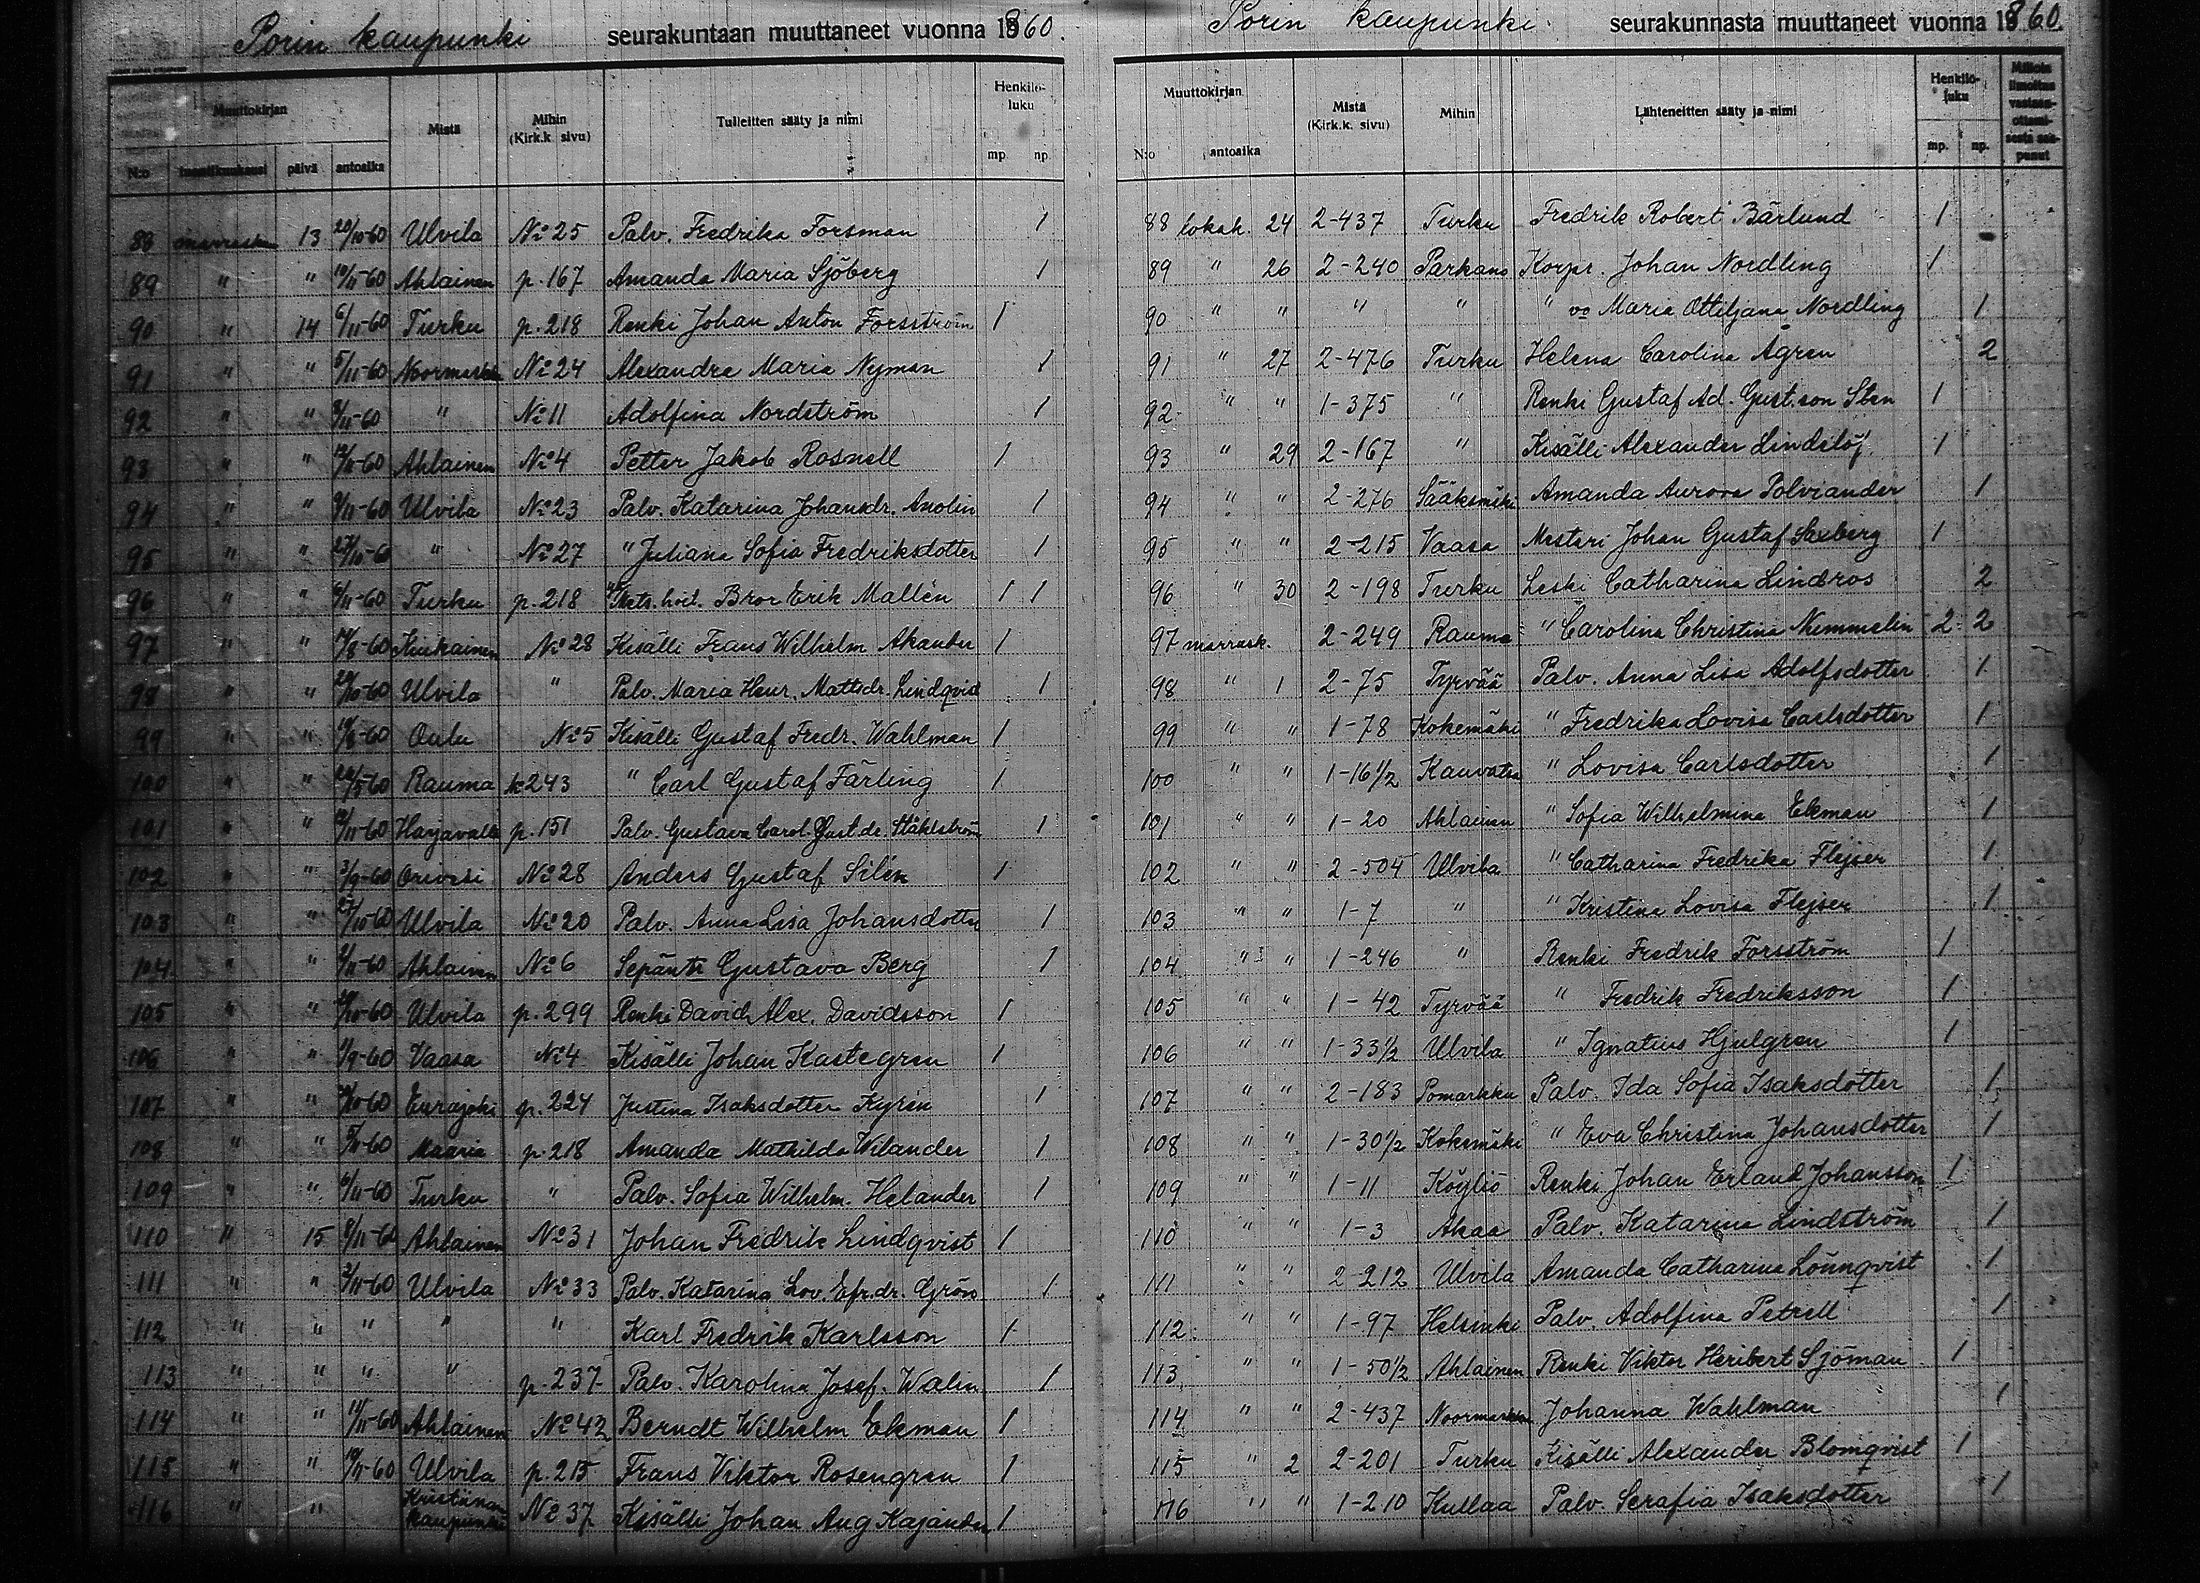 Porin kaupunki seurakuntaan muuttaneet vuonna 1860.
Muuttokirjan Mistä Mihin (Kirk.k. sivu) Tulleitten sääty ja nimi Henkilöluku
N:o päivä antoaika mp. np.
88 marrask. 13 20/10-60 Ulvila No 25 Palv. Fredrika Forsman 1
89 " " 10/11-60 Ahlainen p. 167 Amanda Maria Sjöberg 1
90 " 14 6/11-60 Turku p. 218 Renki Johan Anton Forsström 1
91 " " 5/11-60 Noormarkku No 24 Alexandra Maria Nyman 1
92 " " /11-60 " No 11 Adolfina Nordström 1
93 " " 12/11-60 Ahlainen No 4 Petter Jakob Rosnell 1
94 " " 9/11-60 Ulvila No 23 Palv. Katarina Johansdr. Anolin 1
95 " " 27/10-60 " No 27 " Juliana Sofia Fredriksdotter 1
96 " " 6/11-60 Turku p. 218 Bror Erik Mallén 1 1
97 " " 14/8-60 Kiukainen No 28 Kisälli Frans Wilhelm Akander 1
98 " " 29/10-60 Ulvila " Palv. Maria Henr. Mattsdr. Lindqvist 1
99 " " -60 Oulu No 5 Kisälli Gustaf Fredr. Wahlman 1
100 " " -60 Rauma 243 " Carl Gustaf Färling 1
101 " " 12/11-60 Harjavalta p. 151 Palv. Gustava Carol. Gust.dr. Ståhlström 1
102 " " 3/9-60 Orivesi No 28 Anders Gustaf Silén 1
103 " " 27/10-60 Ulvila No 20 Palv. Anna Lisa Johansdotter 1
104 " " /11-60 Ahlainen No 6 Gustava Berg 1
105 " " /10-60 Ulvila p. 299 Renki David Alex. Davidsson 1
106 " " /9-60 Vaasa No 4 Kisälli Johan Kastegren 1
107 " " /10-60 Eurajoki p. 224 Justina Isaksdotter Kyrén 1
108 " " 5/11-60 Maaria p. 218 Amanda Mathilda Wilander 1
109 " " 6/11-60 Turku " Palv. Sofia Wilhelm. Helander 1
110 " 15 8/11-60 Ahlainen No 31 Johan Fredrik Lindqvist 1
111 " " 2/11-60 Ulvila No 33 Palv. Katarina Lov. Efr.dr. Grön 1
112 " " " " " Karl Fredrik Karlsson 1
113 " " " " p. 237 Palv. Karolina Josef. Walin 1
114 " " 11/11-60 Ahlainen No 42 Berndt Wilhelm Ekman 1
115 " " 10/11-60 Ulvila p. 215 Frans Viktor Rosengren 1
116 " " Kristiinankaupunki No 37 Kisälli Johan Aug Kajander 1
Porin kaupunki seurakunnasta muuttaneet vuonna 1860.
Muuttokirjan Mistä (Kirk.k. sivu) Mihin Lähteneitten sääty ja nimi Henkilöluku Milloin ilmoitus vastaanottamisesta saapunut
N:o antoaika mp. np.
88 lokak. 24 2-437 Turku Fredrik Robert Bärlund 1
89 " 26 2-240 Parkano Korpr. Johan Nordling 1
90 " " " " " vo Maria Ottiljana Nordling 1
91 " 27 2-476 Turku Helena Carolina Ågren 2
92 " " 1-375 " Renki Gustaf Ad. Gust.son Sten 1
93 " 29 2-167 " Kisälli Alexander Lindelöf 1
94 " " 2-276 Sääksmäki Amanda Aurora Polviander 1
95 " " 2-215 Vaasa Mestari Johan Gustaf Saxberg 1
96 " 30 2-198 Turku Leski Catharina Lindros 2
97 marrask. 2-249 Rauma " Carolina Christina Nummelin 2 2
98 " 1 2-75 Tyrvää Palv. Anna Lisa Adolfsdotter 1
99 " " 1-78 Kokemäki " Fredrika Lovisa Carlsdotter 1
100 " " 1-16½ Kauvatsa " Lovisa Carlsdotter 1
101 " " 1-20 Ahlainen " Sofia Wilhelmina Ekman 1
102 " " 2-504 Ulvila " Catharina Fredrika Flejser 1
103 " " 1-7 " " Kristina Lovisa Flejser 1
104 " " 1-246 " Renki Fredrik Forsström 1
105 " " 1-42 Tyrvää " Fredrik Fredriksson 1
106 " " 1-33½ Ulvila " Ignatius Hjulgren 1
107 " " 2-183 Pomarkku Palv. Ida Sofia Isaksdotter 1
108 " " 1-30½ Kokemäki " Eva Christina Johansdotter 1
109 " " 1-11 Köyliö Renki Johan Erland Johansson 1
110 " " 1-3 Akaa Palv. Katarina Lindström 1
111 " " 2-212 Ulvila Amanda Catharina Lönnqvist 1
112 " " 1-97 Helsinki Palv. Adolfina Petrell 1
113 " " 1-50½ Ahlainen Renki Viktor Heribert Sjöman 1
114 " " 2-437 Noormarkku Johanna Wahlman 1
115 " 2 2-201 Turku Kisälli Alexander Blomqvist 1
116 " " 1-210 Kullaa Palv. Serafia Isaksdotter 1